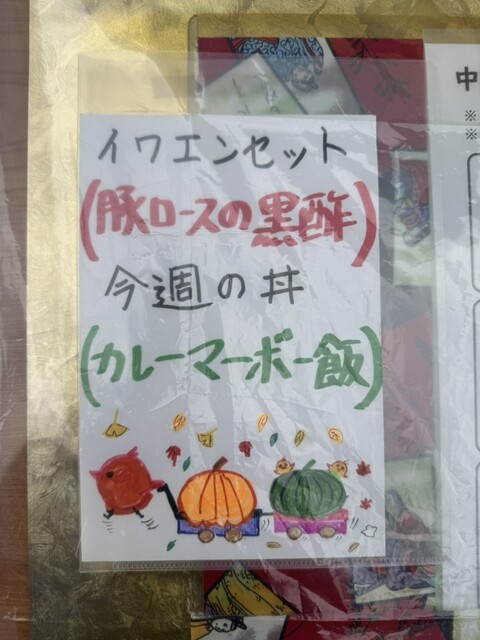 イワエンセット
(豚ロースの黒酢)
今週の丼
(カレーマーボー飯)
中
※
※